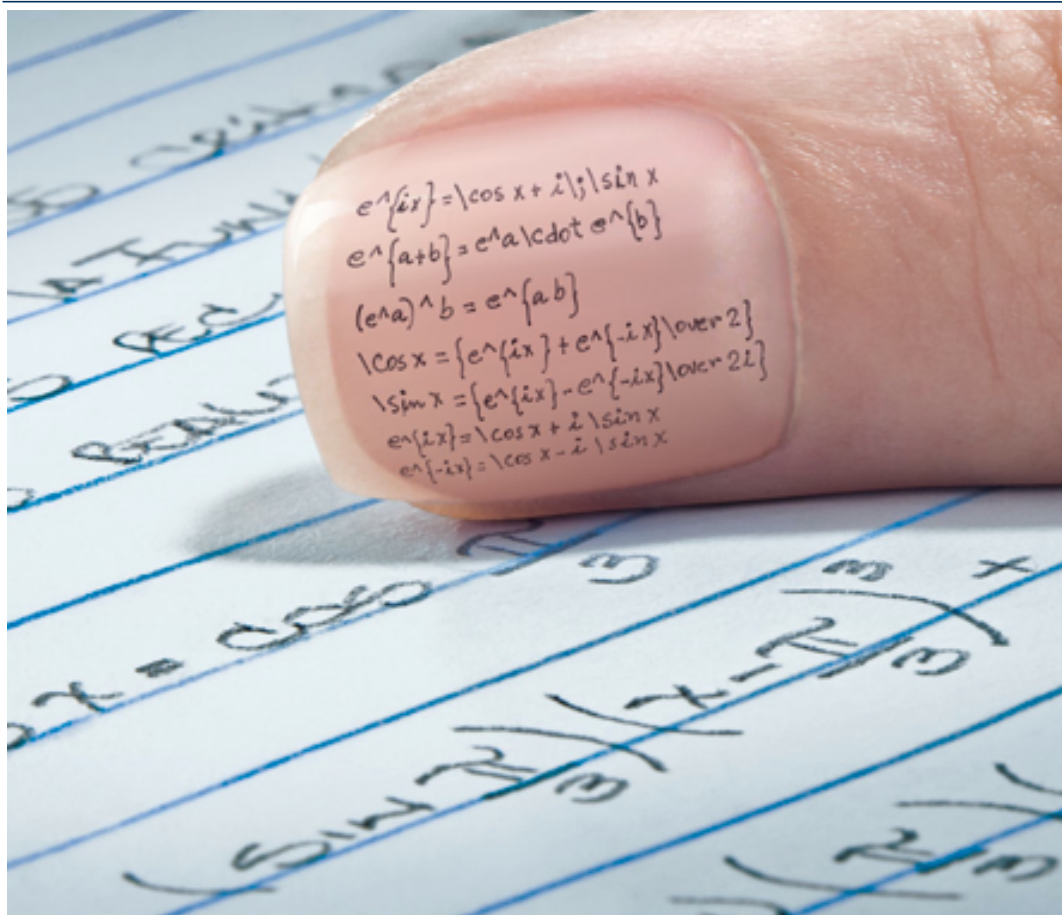 e^{ix}=\cos x + i\;\sin x
e^{a+b}=e^a\cdot e^{b}
(e^a)^b = e^{ab}
\cos x = {e^{ix} + e^{-ix}\over 2}
\sin x = {e^{ix} - e^{-ix}\over 2i}
e^{ix}=\cos x + i \sin x
e^{-ix}=\cos x - i \sin x
x = cos π/3
(sin π/3)(x-π/3) 3 +
(π/3)(